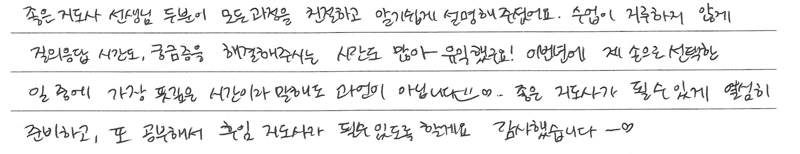 좋은 지도사 선생님 두분이 모든 과정을 친절하고 알기쉽게 설명해주셨어요. 수업이 지루하지 않게
질의응답 시간도, 궁금증을 해결해주시는 시간도 많아 유익했구요! 이번년에 제 손으로 선택한
일 중에 가장 뜻깊은 시간이라 말해도 과언이 아닙니다!! ♡. 좋은 지도사가 될 수 있게 열심히
준비하고, 또 공부해서 지도사가 될 수 있도록 할게요 감사했습니다 ~♡